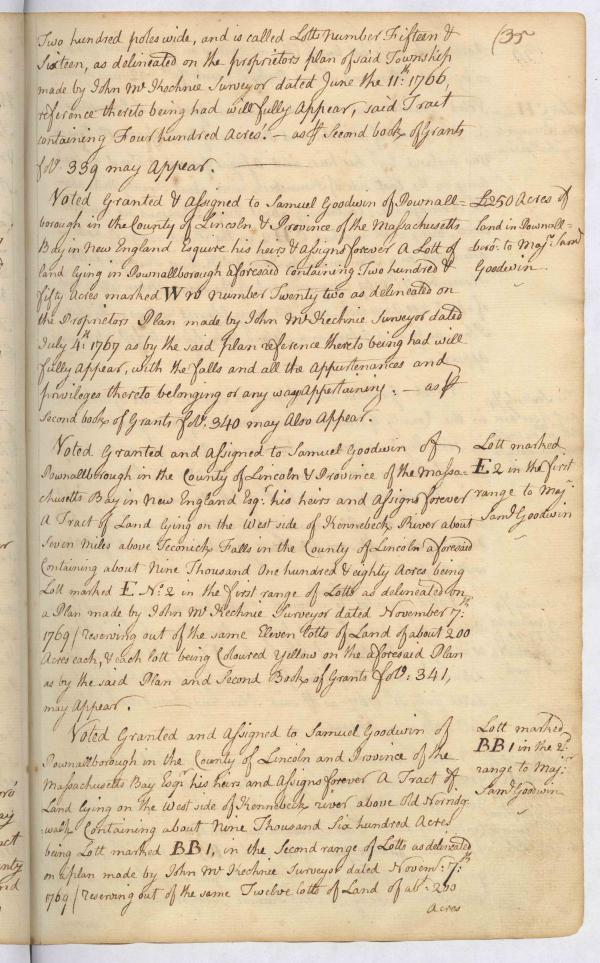 (35
Two hundred poles wide, and is called Lotts number Fifteen &
Sixteen, as delineated on the proprietors plan of said Township
made by John Mc Kechnie Surveyor dated June the 11th: 1766,
reference thereto being had will fully Appear, said Tract
containing Four hundred Acres. — as p Second book of Grants
fol: 339 may Appear. —
Voted Granted & Assigned to Samuel Goodwin of Pownall=
borough in the County of Lincoln & Province of the Massachusetts
Bay in New England Esquire his heirs & Assigns forever A Lott of
land lying in Pownallborough aforesaid Containing Two hundred &
fifty Acres marked W No number Twenty two as delineated on
the Proprietors Plan made by John Mc Kechnie Surveyor dated
July 4th: 1767 as by the said plan reference thereto being had will
fully Appear, with the falls and all the Appurtenances and
priviledges thereto belonging or any way Appertaining. — as p
Second book of Grants fol: 340 may Also Appear.
250 Acres of
land in Pownall=
boro: to Majr. Saml
Goodwin
Voted Granted and Assigned to Samuel Goodwin of
Pownallborough in the County of Lincoln & Province of the Massa=
chusetts Bay in New England Esqr. his heirs and Assigns forever
A Tract of Land lying on the West side of Kennebeck River about
Seven Miles above Teconick Falls in the County of Lincoln aforesaid
Containing about Nine Thousand One hundred & eighty Acres being
Lott marked E No. 2 in the first range of Lotts as delineated on
a Plan made by John Mc Kechnie Surveyor dated November 7th:
1769 / reserving out of the same Eleven lotts of Land of about 200
Acres each, & each lott being Coloured Yellow on the aforesaid Plan
as by the said Plan and Second Book of Grants fol: 341,
may Appear. —
Lott marked
E 2 in the first
range to Majr.
Saml. Goodwin
Voted Granted and Assigned to Samuel Goodwin of
Pownallborough in the County of Lincoln and Province of the
Massachusetts Bay Esqr. his heirs and Assigns forever A Tract of
Land lying on the West side of Kennebeck river above Old Norridg
walk Containing about Nine Thousand Six hundred Acres
being Lott marked BB 1, in the Second range of Lotts as delineated
on a plan made by John Mc Kechnie Surveyor dated Novemr. 7th:
1769 / reserving out of the same Twelve lotts of Land of abt. 200
Acres
Lott marked
BB 1 in the 2d.
range to Majr.
Saml. Goodwin